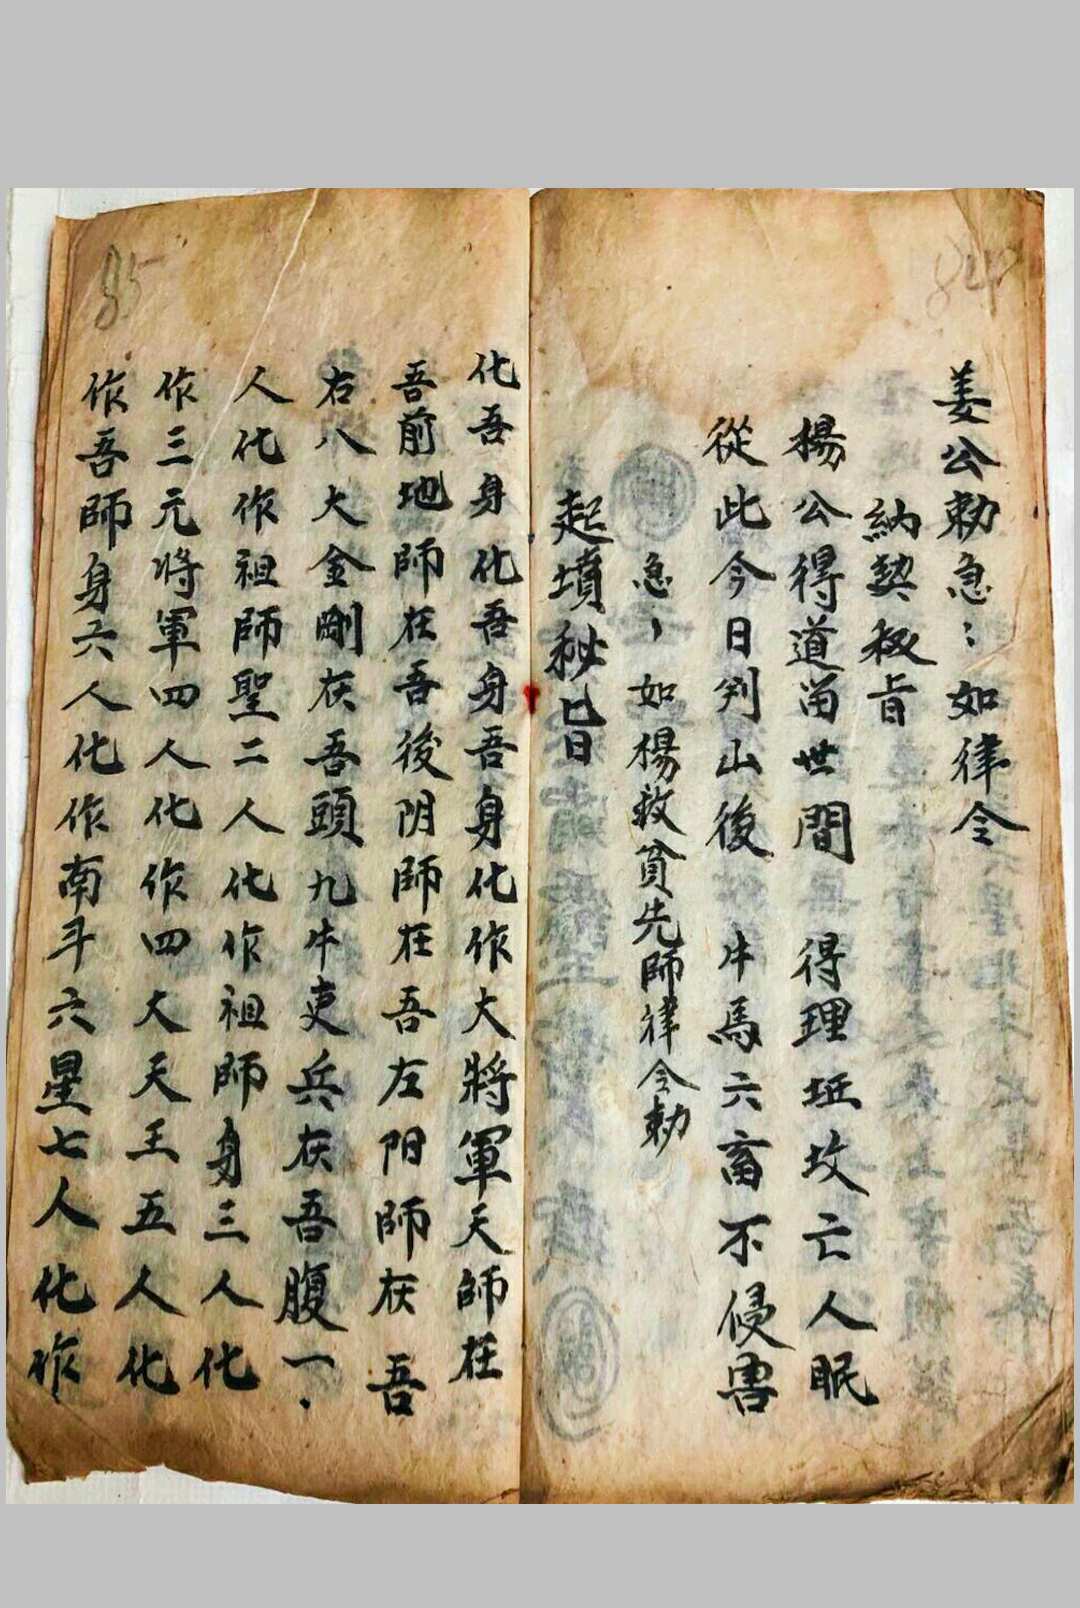 84
姜公勅急〻如律令
納契秘旨
楊公得道畄世間 得理坵坟亡人眠
從此今日判山後 牛馬六畜不侵害
急〻如楊救貧先師律令勅
起墳秘旨
85
化吾身化吾身吾身化作大將軍天師在
吾前地師在吾後阴師在吾左阳師在吾
右八大金剛在吾頭九牛吏兵在吾腹一
人化作祖師聖二人化作祖師身三人化
作三元將軍四人化作四大天王五人化
作吾師身六人化作南斗六星七人化作